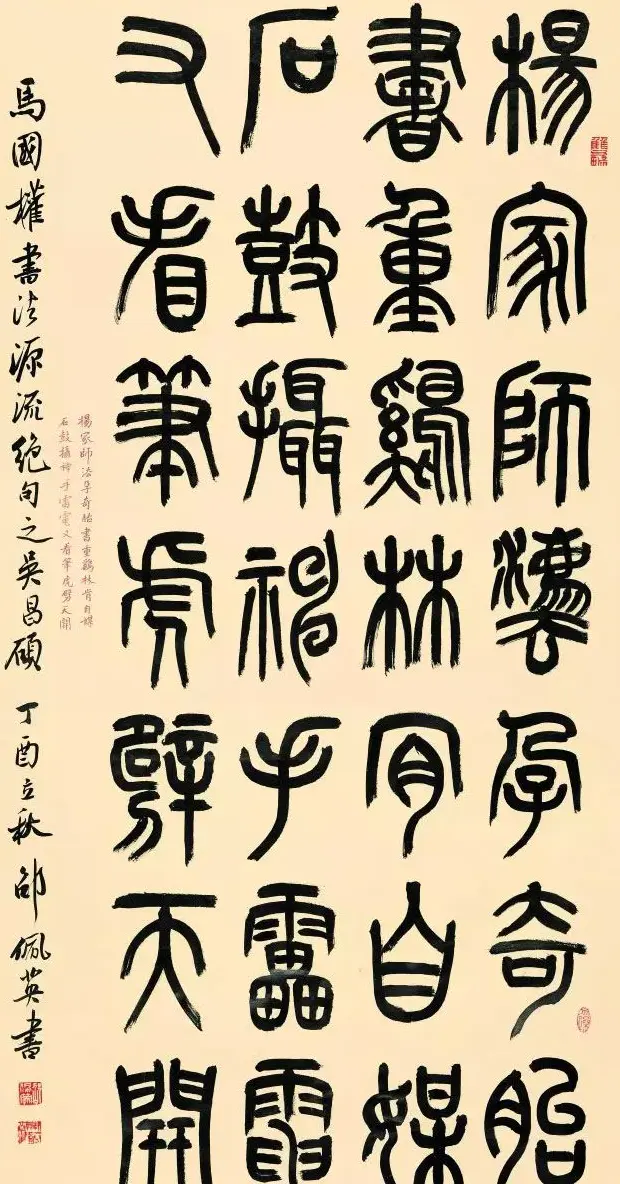 楊家師灋孕奇胎
書重鷄林肯自媒
石鼓攝神手靁電
又看筆虎劈天開
楊家師法孕奇胎書重鷄林肯自媒
石鼓攝神手雷電又看筆虎劈天開
馬國權書法源流絶句之吴昌碩 丁酉立秋 邵佩英書